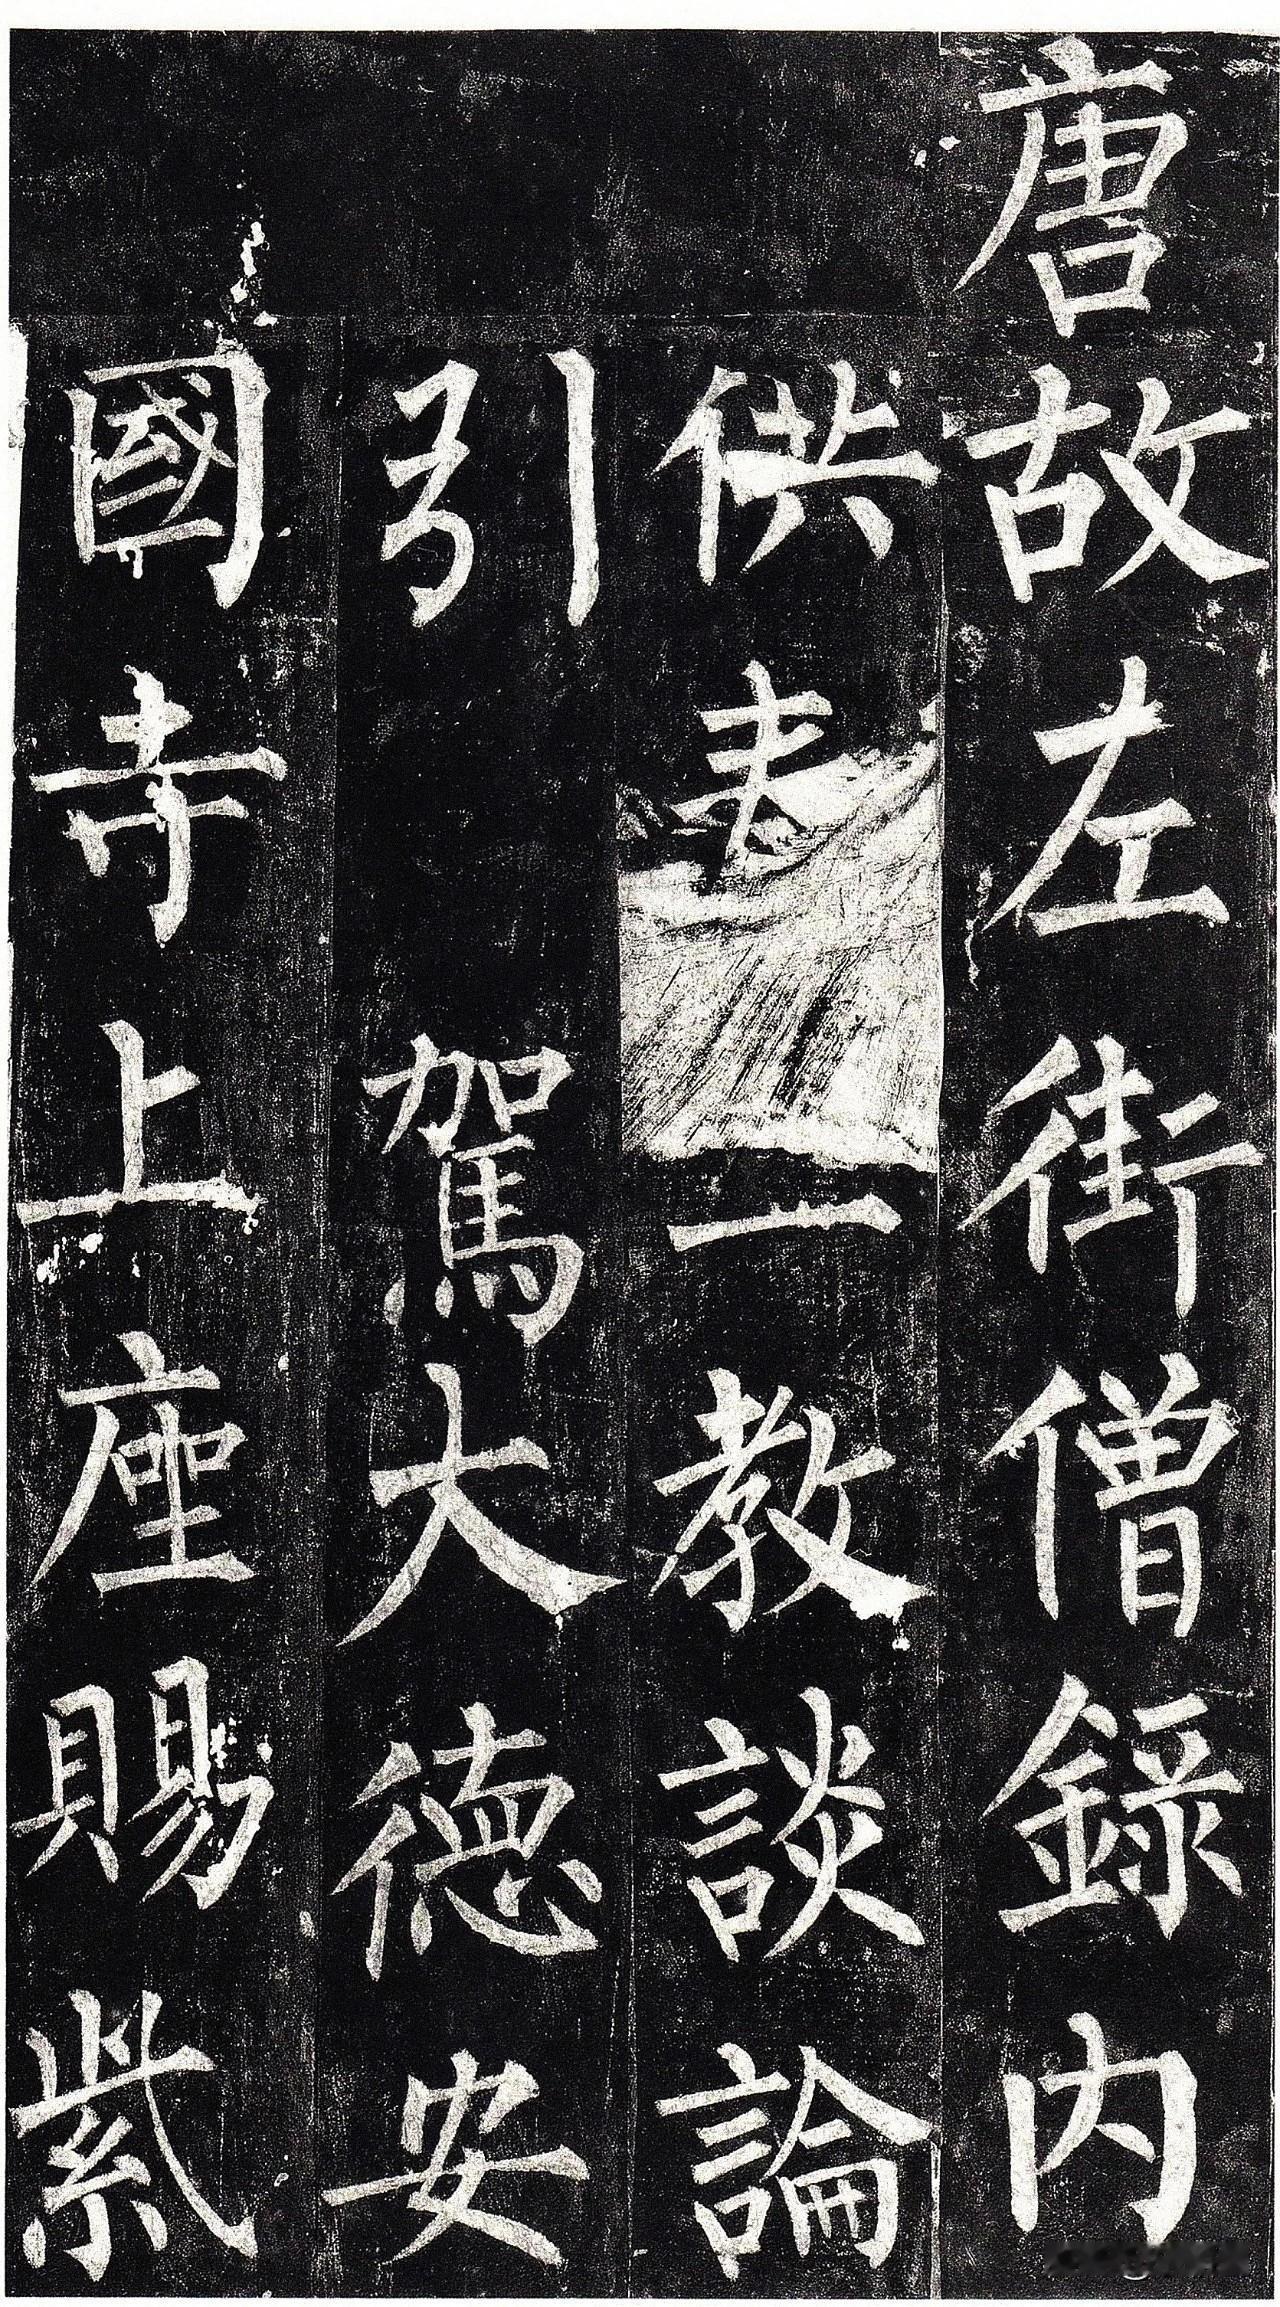 唐故左街僧錄内
供奉三教談論
引 駕大德安
國寺上座賜紫